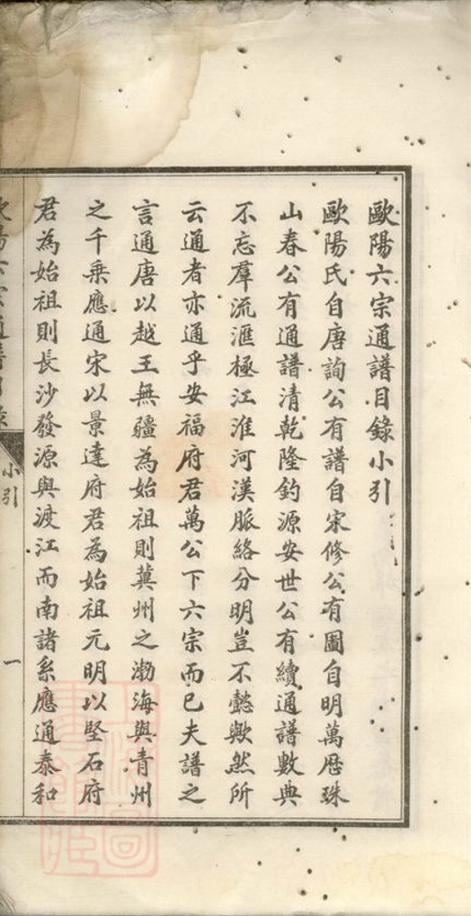 歐陽六宗通譜目錄小引
歐陽氏自唐詢公有譜自宋修公有圖自明萬厯珠
山春公有通譜清乾隆鈞源安世公有續通譜數典
不忘羣流滙極江淮河漢脈絡分明豈不懿歟然所
云通者亦通乎安福府君萬公下六宗而已夫譜之
言通唐以越王無疆為始祖則冀州之渤海與青州
之千乗應通宋以景達府君為始祖元明以堅石府
君為始祖則長沙發源與渡江而南諸系應通泰和
小引
一